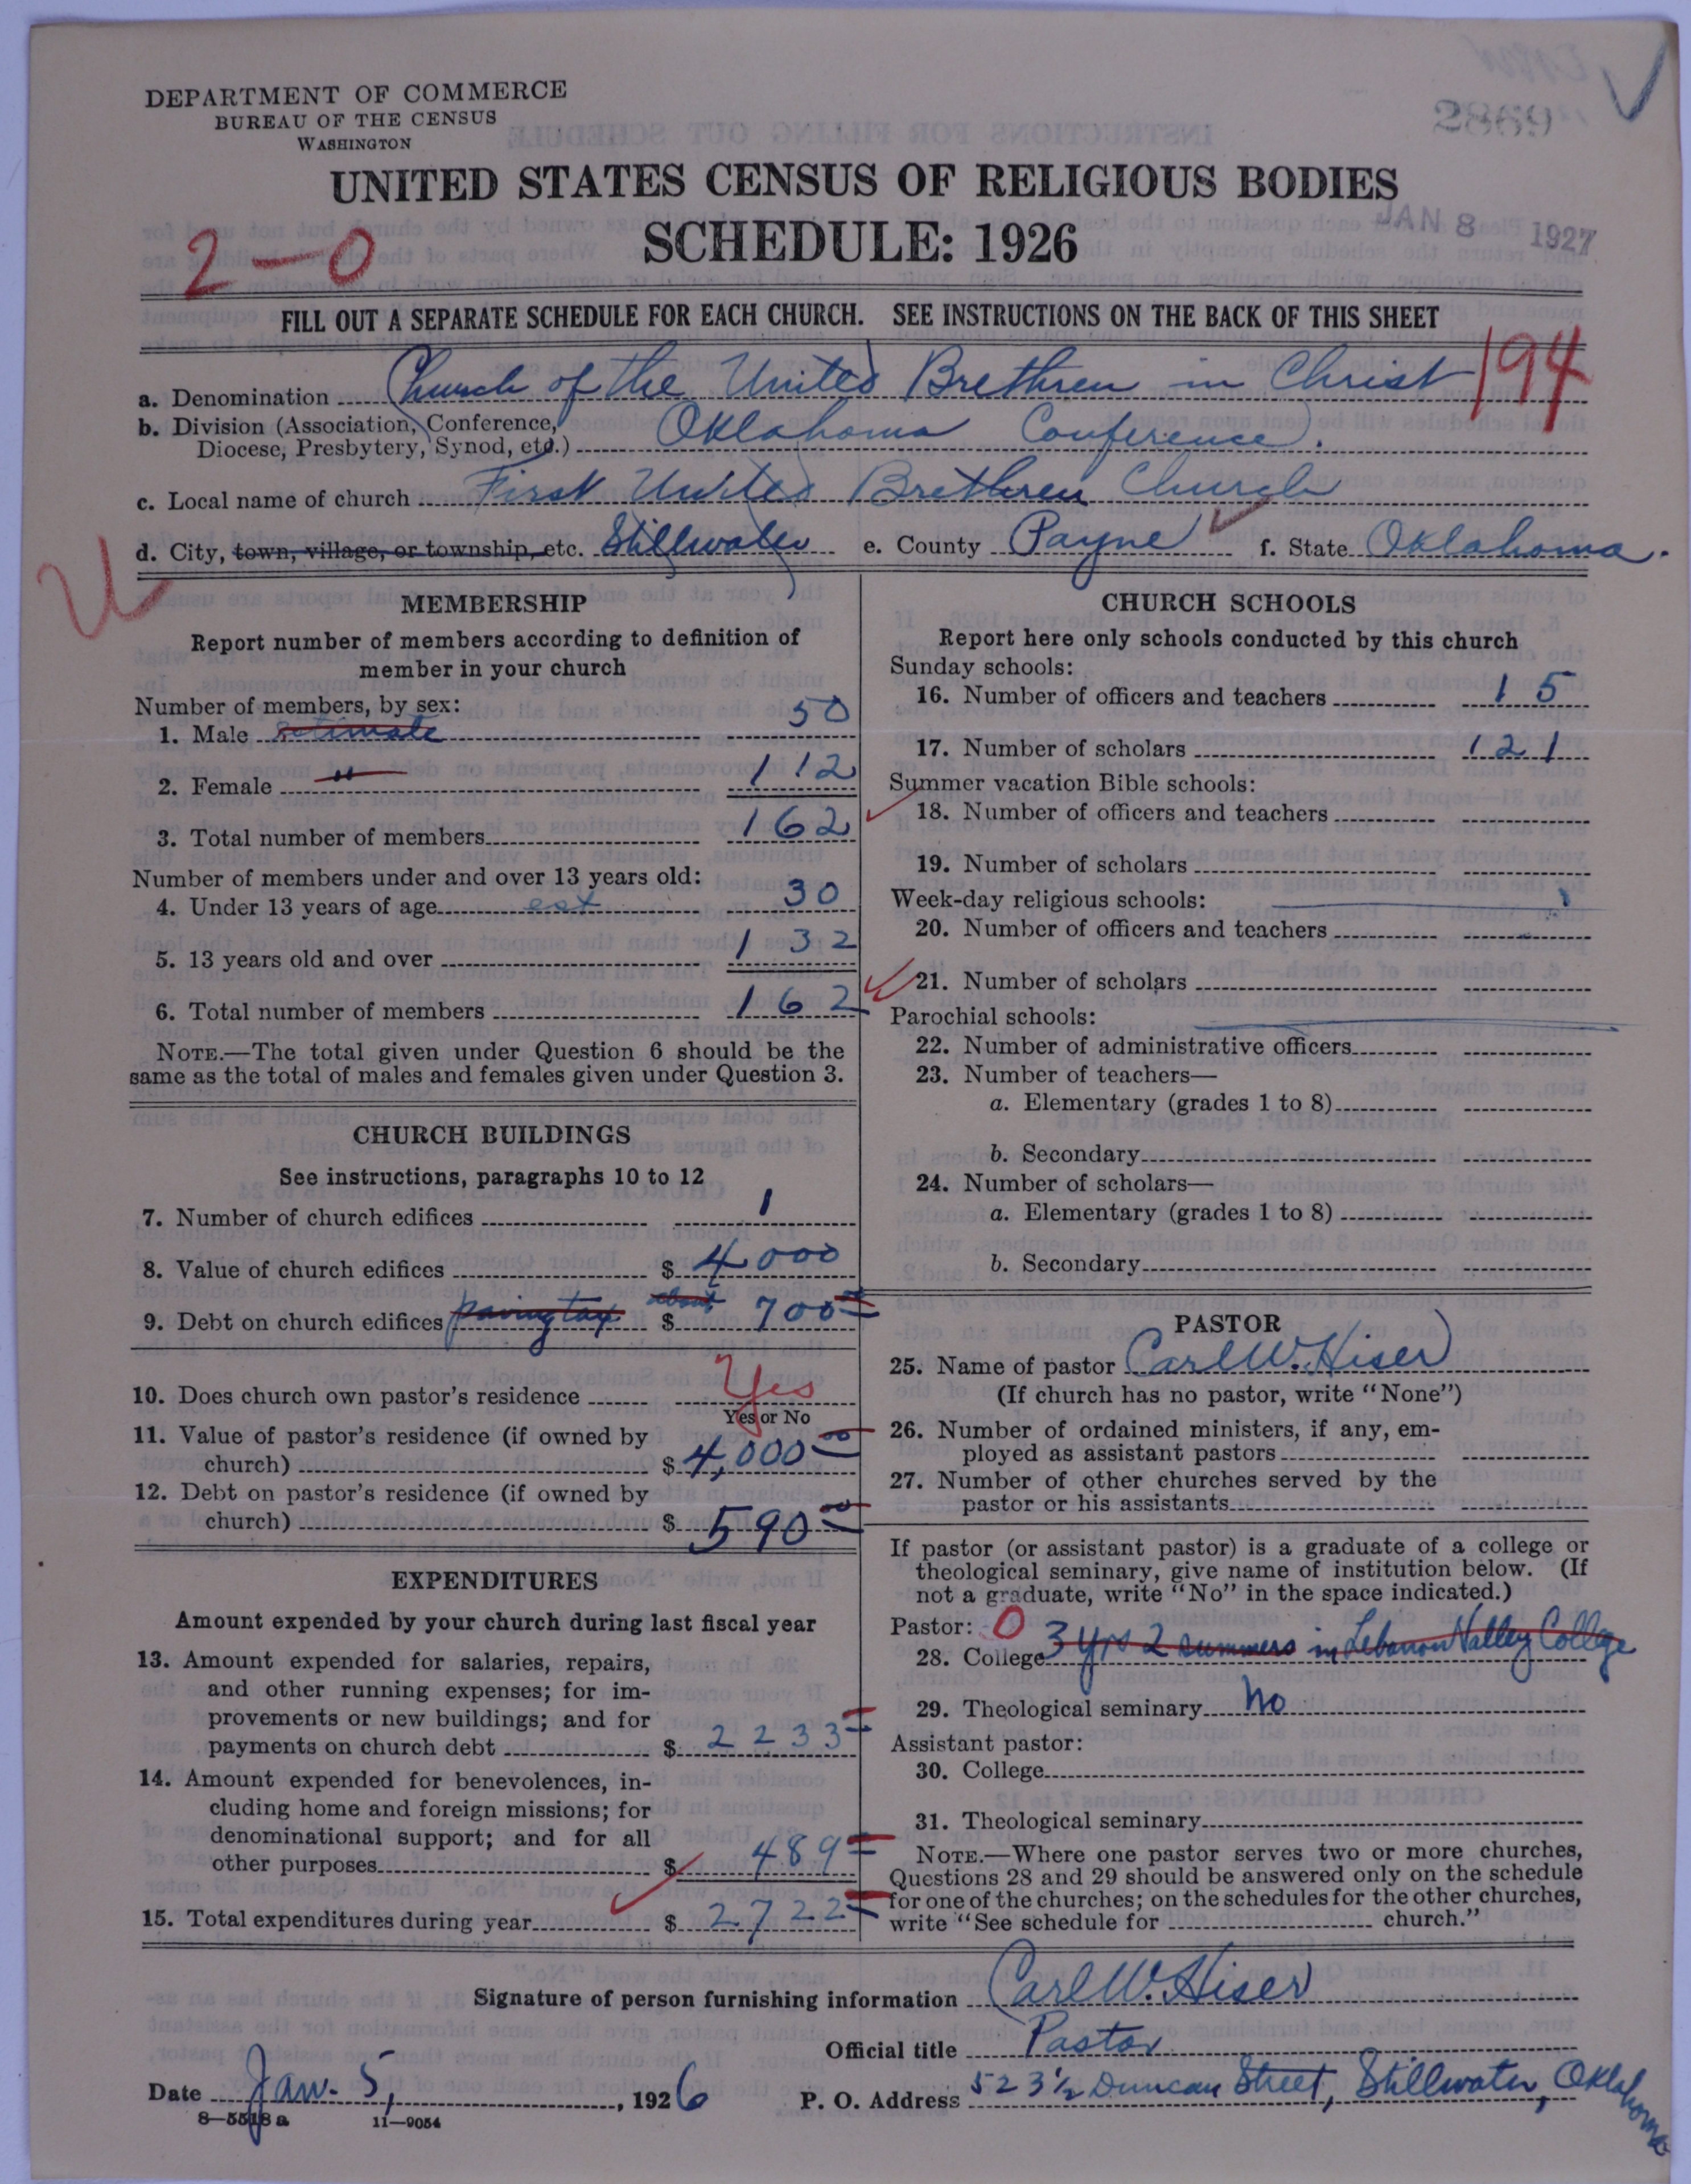 DEPARTMENT OF COMMERCE
BUREAU OF THE CENSUS
WASHINGTON
2869
UNITED STATES CENSUS OF RELIGIOUS BODIES
SCHEDULE: 1926
JAN 8 1927
2-0
FILL OUT A SEPARATE SCHEDULE FOR EACH CHURCH. SEE INSTRUCTIONS ON THE BACK OF THIS SHEET
194
a. Denomination Church of the United Brethren in Christ
b. Division (Association, Conference,
Diocese, Presbytery, Synod, etc.) Oklahoma Conference.
c. Local name of church First United Brethren Church
d. City, town, village, or township, etc. Stillwater e. County Payne f. State Oklahoma.
MEMBERSHIP
Report number of members according to definition of
member in your church
Number of members, by sex:
1. Male estimate 50
2. Female " 112
3. Total number of members 162
Number of members under and over 13 years old:
4. Under 13 years of age est 30
5. 13 years old and over 132
6. Total number of members 162
NOTE.—The total given under Question 6 should be the
same as the total of males and females given under Question 3.
CHURCH BUILDINGS
See instructions, paragraphs 10 to 12
7. Number of church edifices 1
8. Value of church edifices $ 4000
9. Debt on church edifices paving tax about $ 700
10. Does church own pastor's residence Yes
Yes or No
11. Value of pastor's residence (if owned by
church) $ 4,000 00
12. Debt on pastor's residence (if owned by
church) $ 590 00
EXPENDITURES
Amount expended by your church during last fiscal year
13. Amount expended for salaries, repairs,
and other running expenses; for im-
provements or new buildings; and for
payments on church debt $ 2233
14. Amount expended for benevolences, in-
cluding home and foreign missions; for
denominational support; and for all
other purposes $ 489
15. Total expenditures during year $ 2722
CHURCH SCHOOLS
Report here only schools conducted by this church
Sunday schools:
16. Number of officers and teachers 15
17. Number of scholars 121
Summer vacation Bible schools:
18. Number of officers and teachers
19. Number of scholars
Week-day religious schools:
20. Number of officers and teachers
21. Number of scholars
Parochial schools:
22. Number of administrative officers
23. Number of teachers—
a. Elementary (grades 1 to 8)
b. Secondary
24. Number of scholars—
a. Elementary (grades 1 to 8)
b. Secondary
PASTOR
25. Name of pastor Carl W. Hiser
(If church has no pastor, write "None")
26. Number of ordained ministers, if any, em-
ployed as assistant pastors
27. Number of other churches served by the
pastor or his assistants
If pastor (or assistant pastor) is a graduate of a college or
theological seminary, give name of institution below. (If
not a graduate, write "No" in the space indicated.)
Pastor: 0
28. College 3 yrs 2 summers in Lebanon Valley College
29. Theological seminary No
Assistant pastor:
30. College
31. Theological seminary
NOTE.—Where one pastor serves two or more churches,
Questions 28 and 29 should be answered only on the schedule
for one of the churches; on the schedules for the other churches,
write "See schedule for church."
Signature of person furnishing information Carl W. Hiser
Official title Pastor
Date Jan. 5, 1926 P. O. Address 523½ Duncan Street, Stillwater, Oklahoma
8—5518 a 11—9054